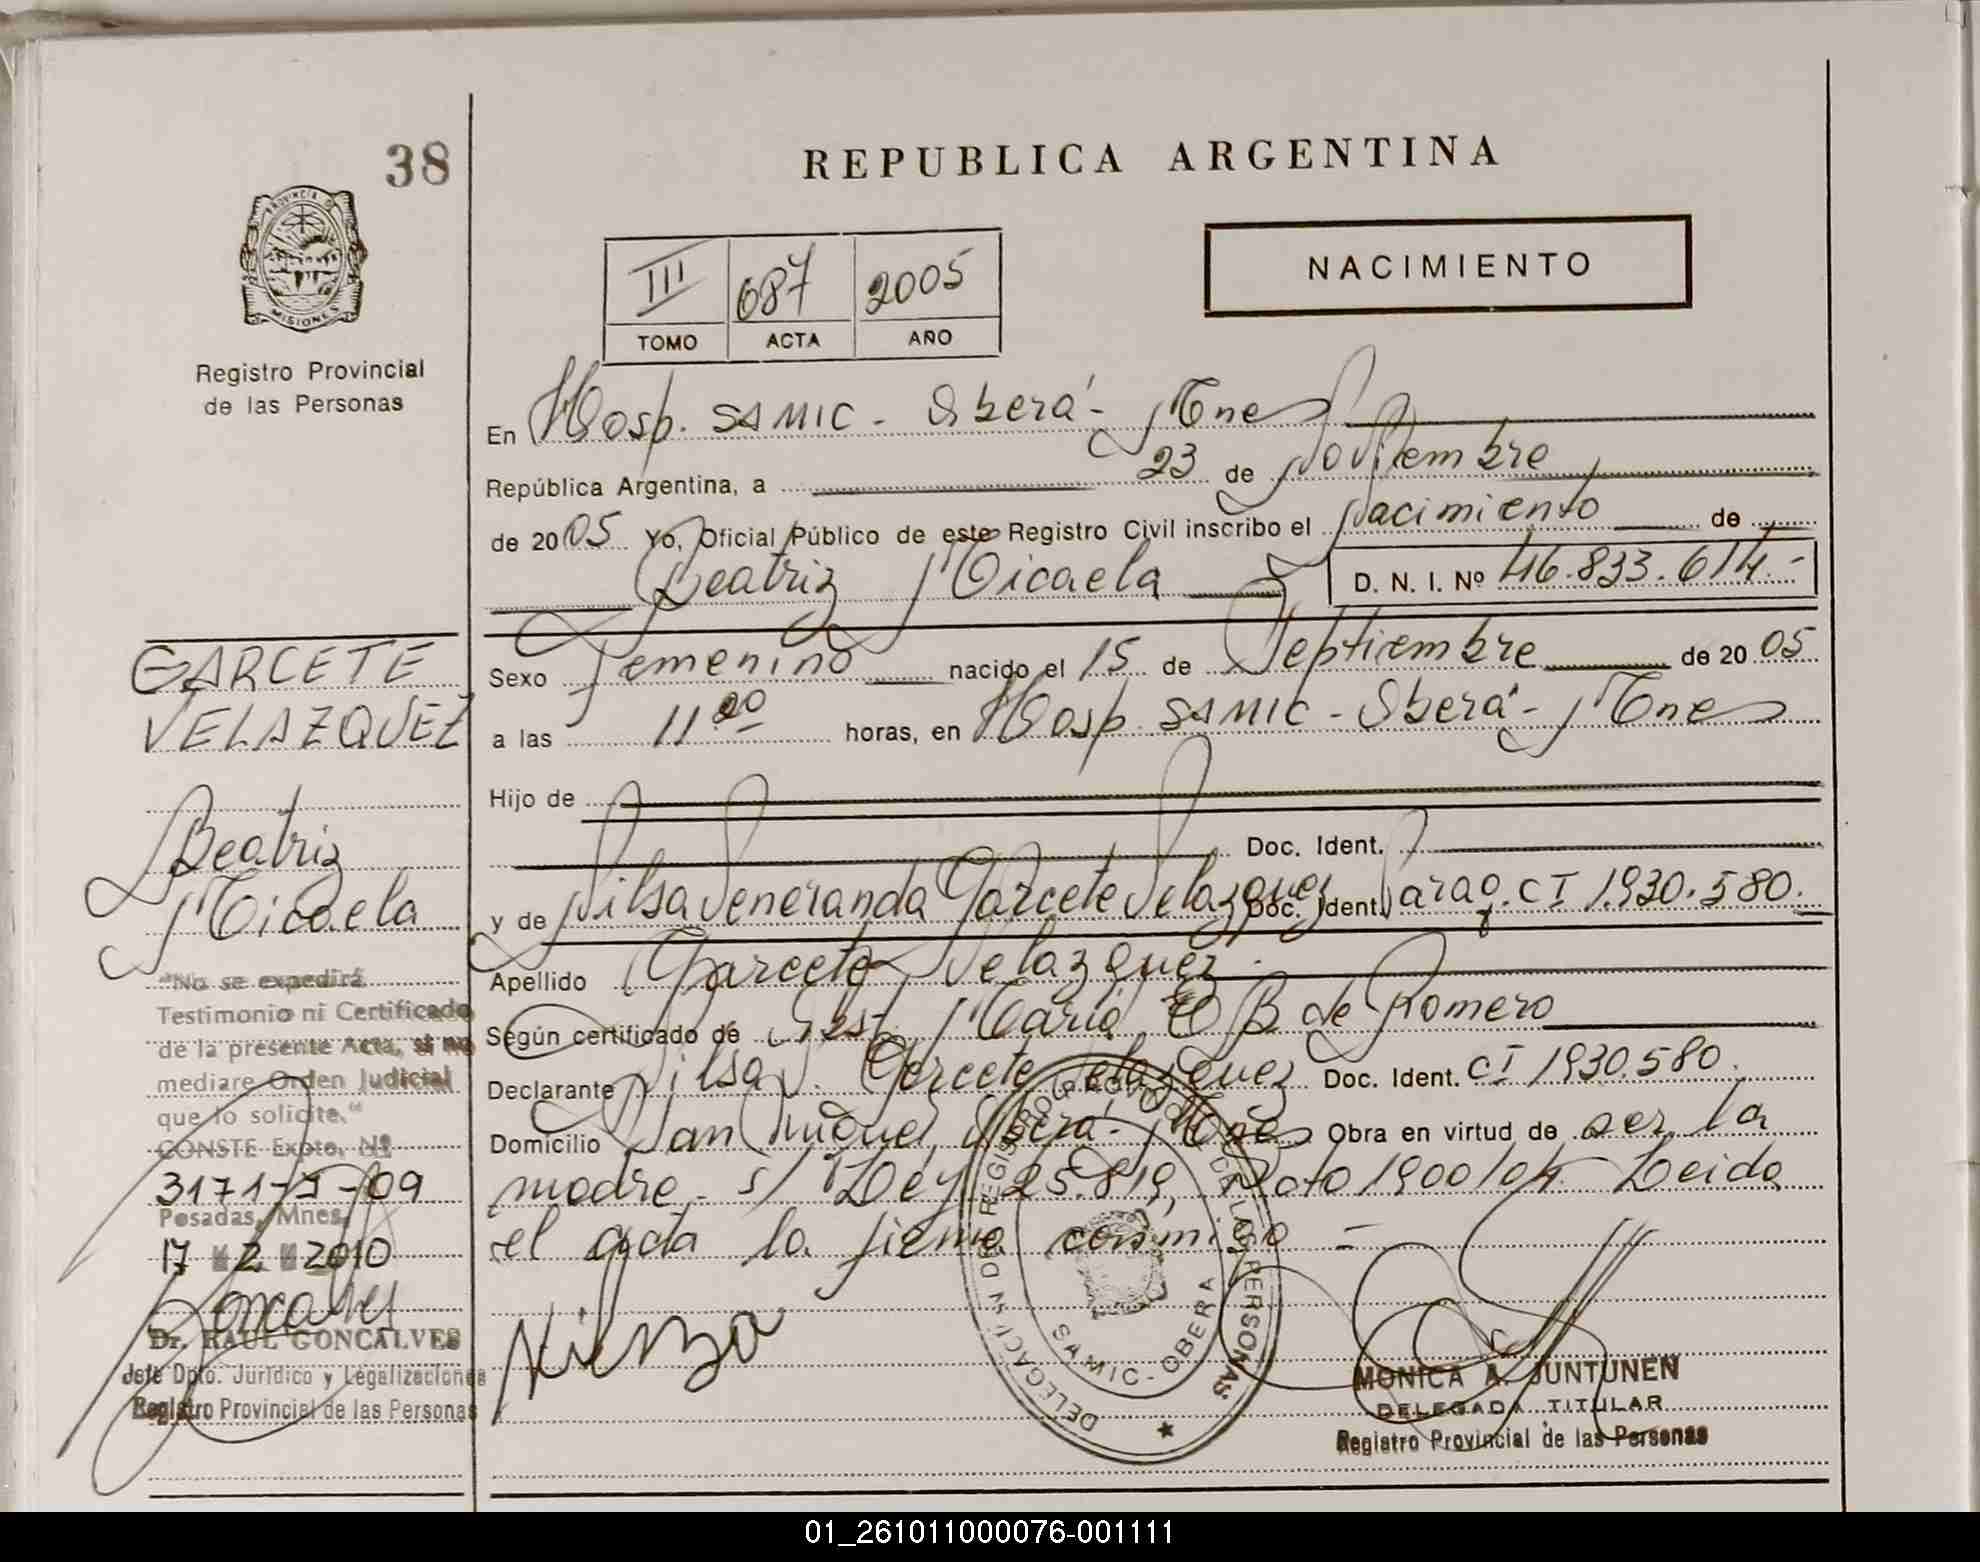 38
REPUBLICA ARGENTINA
PROVINCIA D
MISIONES
Registro Provincial
de las Personas
III 687 2005
TOMO ACTA AÑO
NACIMIENTO
En Hosp. SAMIC - Oberá - Mnes
República Argentina, a 23 de Noviembre
de 2005 Yo, Oficial Público de este Registro Civil inscribo el Nacimiento de
Beatriz Micaela D. N. I. Nº 46.833.614.-
Sexo Femenino nacido el 15 de Septiembre de 2005
a las 11 00 horas, en Hosp. SAMIC - Oberá - Mnes
Hijo de
Doc. Ident.
y de Nilsa Veneranda Garcete Velazquez Doc. Ident. Parag. CI 1.930.580.
Apellido Garcete Velazquez.
Según certificado de Obst. María E B de Romero
Declarante Nilsa V. Garcete Velazquez Doc. Ident. CI 1930.580.
Domicilio San Miguel, Oberá - Mnes Obra en virtud de ser la
madre - s/ Ley 25.819, Dcto 1900/04. Leida
el acta la firma conmigo -
Nilsa
GARCETE
VELAZQUEZ
Beatriz
Micaela
"No se expedirá
Testimonio ni Certificado
de la presente Acta, si no
mediare Orden Judicial
que lo solicite."
CONSTE Expte. Nº
3171-J-09
Posadas, Mnes,
17 2 2010
Goncalves
Dr. RAUL GONCALVES
Jefe Dpto. Jurídico y Legalizaciones
Registro Provincial de las Personas
DELEGACION DEL REGISTRO PROVINCIAL DE LAS PERSONAS
SAMIC - OBERA
MONICA A. JUNTUNEN
DELEGADA TITULAR
Registro Provincial de las Personas
01_261011000076-001111